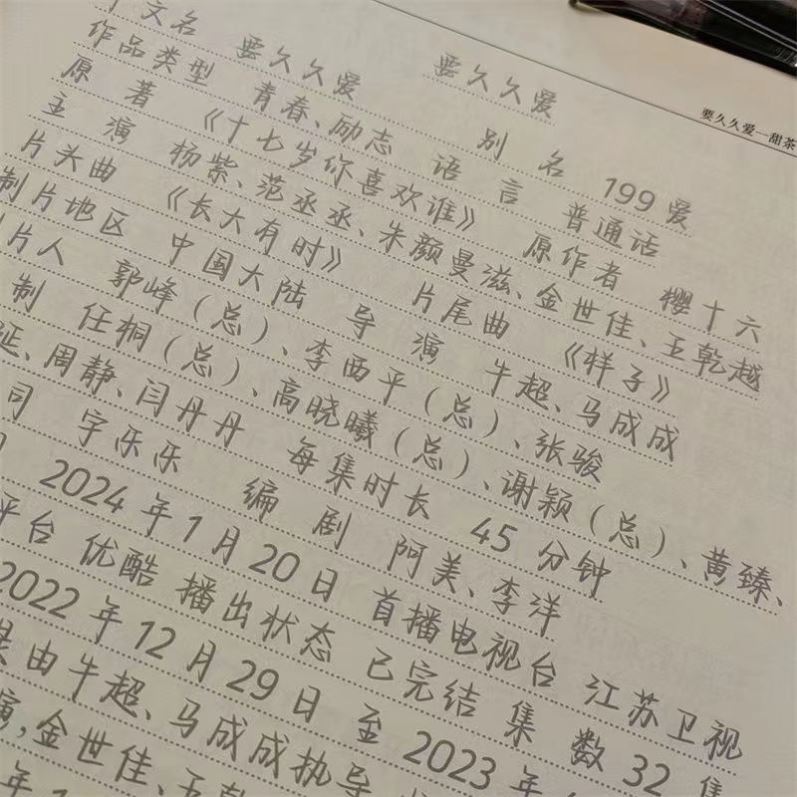 要久久爱—甜茶
要久久爱
文名 要久久爱 别 名 199爱
作品类型 青春、励志 语 言 普通话
原 著 《十七岁你喜欢谁》 原作者 樱十六
主 演 杨紫、范丞丞、朱颜曼滋、金世佳、王乾越
片头曲 《长大有时》 片尾曲 《样子》
制片地区 中国大陆 导 演 牛超、马成成
片人 郭峰（总）、李西平（总）、张骏
制 任桐（总）、高晓曦（总）、谢颖（总）、黄臻、
延、周静、闫丹丹 每集时长 45 分钟
司 宇乐乐 编 剧 阿美、李洋
2024年1月20日 首播电视台 江苏卫视
平台 优酷 播出状态 已完结 集 数 32 集
2022年12月29日 至 2023年
由牛超、马成成执导
演,金世佳、王乾
年1